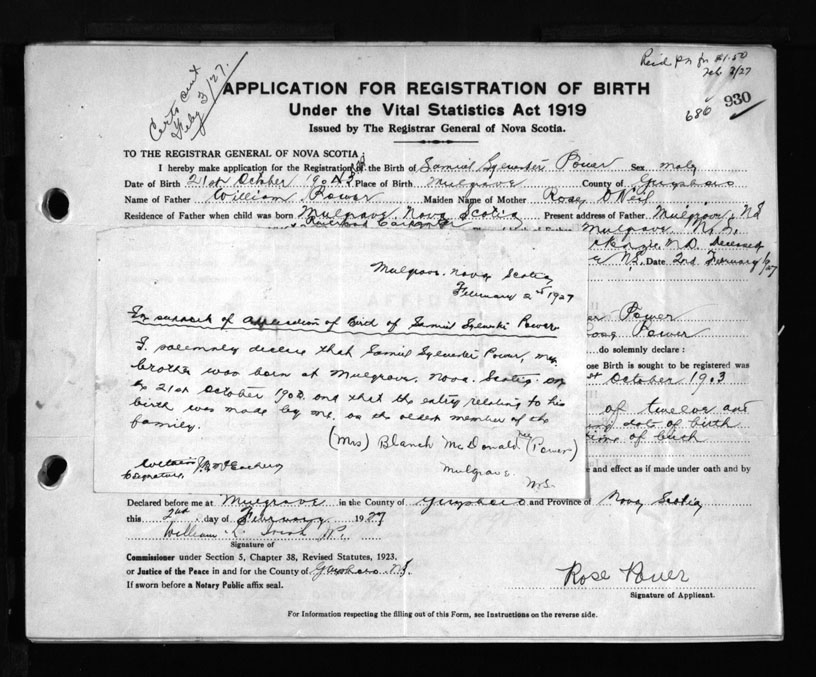 Certs sent
Feby 3/27.
Feb 3/27
680 930
APPLICATION FOR REGISTRATION OF BIRTH
Under the Vital Statistics Act 1919
Issued by The Registrar General of Nova Scotia.
TO THE REGISTRAR GENERAL OF NOVA SCOTIA
I hereby make application for the Registration of the Birth of Samuel Sylvester Power Sex male
Date of Birth 21st October 1903 Place of Birth Mulgrave County of Guysboro
Name of Father William Power Maiden Name of Mother Rose O'Neil
Residence of Father when child was born Mulgrave, Nova Scotia Present address of Father Mulgrave, N.S.
Mulgrave N.S.
M.D. Deceased
N.S. Date 2nd February
Mulgrave. Nova Scotia
February 2nd 1927
In support of Application of Birth of Samuel Sylvester Power
I solemnly declare that Samuel Sylvester Power, my
brother was born at Mulgrave, Nova Scotia on
21st October and that the entry relating to his
birth was made by me, as the oldest member of the
family.
(Mrs) Blanch McDonald nee (Power)
Mulgrave
N.S.
Witness
Signature
Power
Rose Power
do solemnly declare :
ose Birth is sought to be registered was
st October 1903
of twelve and
date of birth
of birth
e and effect as if made under oath and by
Declared before me at Mulgrave in the County of Guysboro and Province of Nova Scotia
this 2nd day of February 1927
William
Signature of
Commissioner under Section 5, Chapter 38, Revised Statutes, 1923.
or Justice of the Peace in and for the County of Guysboro N.S.
If sworn before a Notary Public affix seal.
Rose Power
Signature of Applicant.
For Information respecting the filling out of this Form, see Instructions on the reverse side.